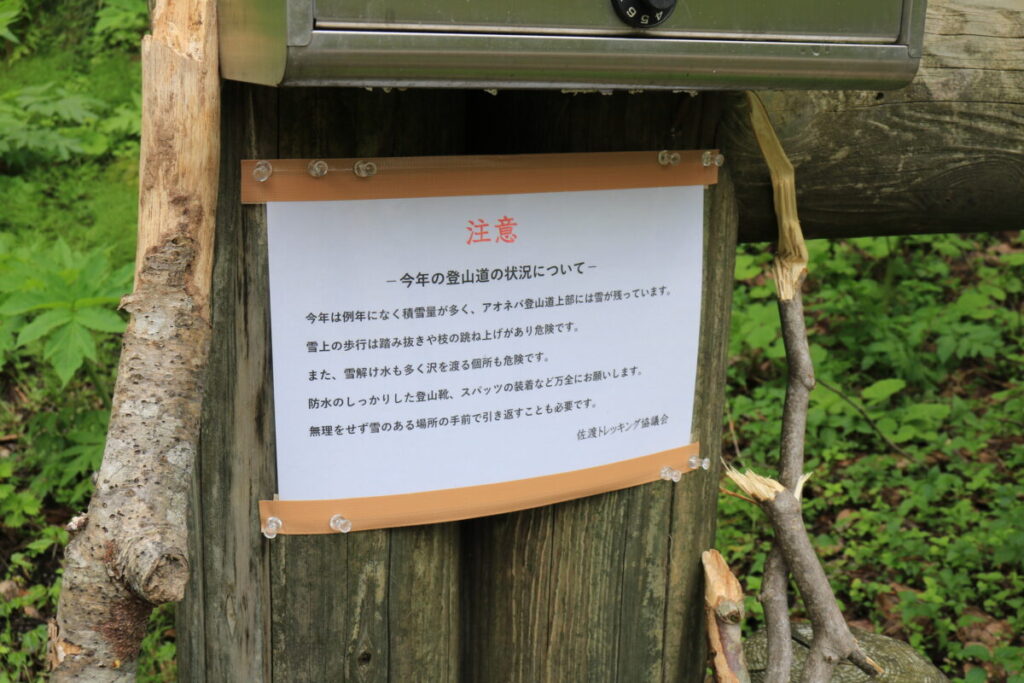 注意
－今年の登山道の状況について－
今年は例年になく積雪量が多く、アオネバ登山道上部には雪が残っています。
雪上の歩行は踏み抜きや枝の跳ね上げがあり危険です。
また、雪解け水も多く沢を渡る個所も危険です。
防水のしっかりした登山靴、スパッツの装着など万全にお願いします。
無理をせず雪のある場所の手前で引き返すことも必要です。
佐渡トレッキング協議会